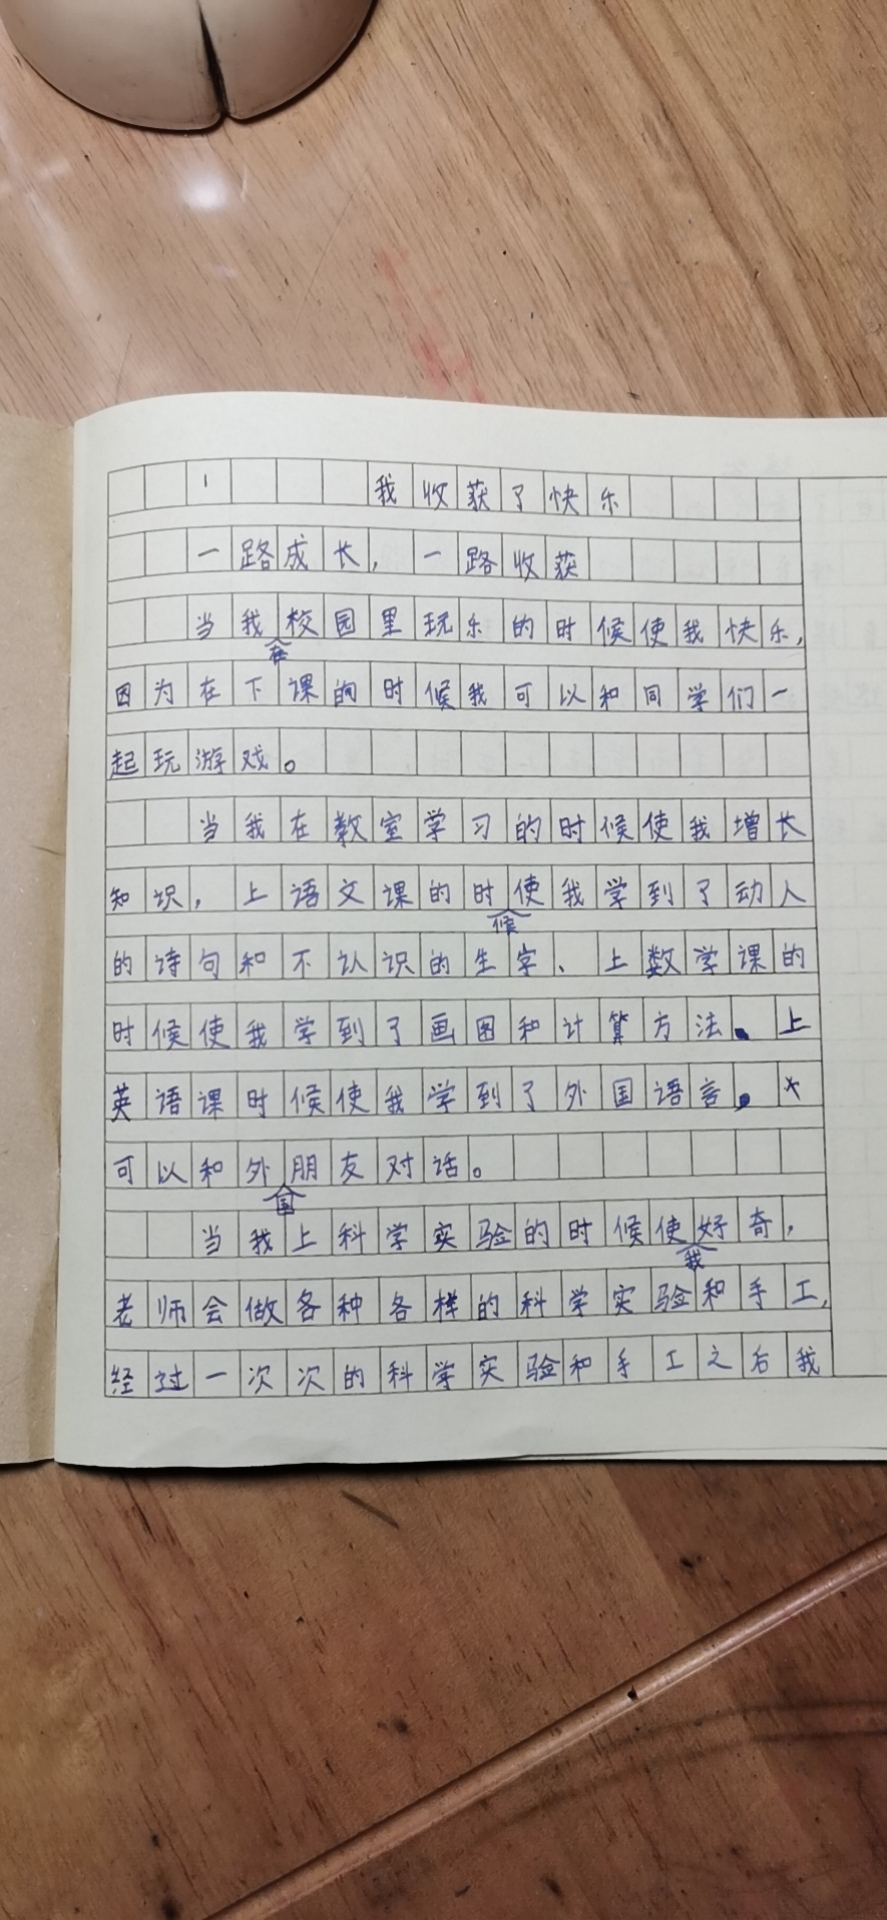 我收获了快乐
一路成长，一路收获
当我在校园里玩乐的时候使我快乐，
因为在下课的时候我可以和同学们一
起玩游戏。
当我在教室学习的时候使我增长
知识，上语文课的时候使我学到了动人
的诗句和不认识的生字、上数学课的
时候使我学到了画图和计算方法。上
英语课时候使我学到了外国语言，
可以和外国朋友对话。
当我上科学实验的时候使我好奇，
老师会做各种各样的科学实验和手工，
经过一次次的科学实验和手工之后我